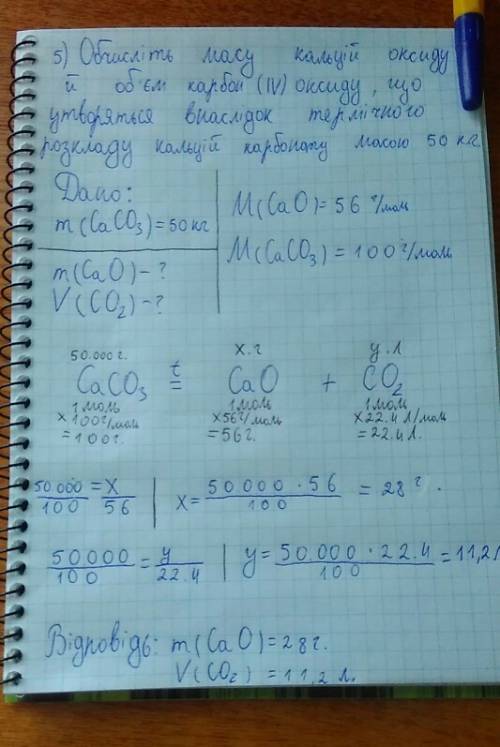 5) Обчисліть масу кальцій оксиду
й об'єм карбон (IV) оксиду, що
утворяться внаслідок термічного
розкладу кальцій карбонату масою 50 кг.
Дано:
m(CaCO₃)=50кг
m(CaO)-?
V(CO₂)-?
M(CaO)=56 г/моль
M(CaCO₃)=100г/моль
50.000г. x.г y.л
CaCO₃ t= CaO + CO₂
1моль 1моль 1моль
×100г/моль ×56г/моль ×22.4л/моль
=100г. =56г. =22.4л.
50 000/100 = x/56 | x= 50.000·56/100 = 28 г.
50000/100 = y/22.4 | y= 50.000·22.4/100 =11,2л
Відповідь: m(CaO)=28г.
V(CO₂) =11,2 л.